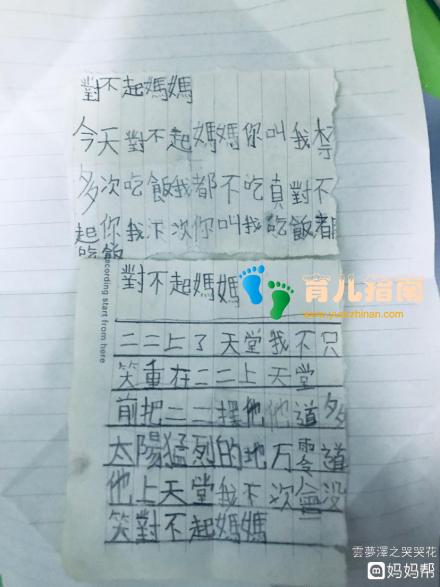 對不起媽媽
今天對不起媽媽你叫我
多次吃飯我都不吃真對不
起你我下次你叫我吃飯都
吃飯
ecording start from here
對不起媽媽
育儿指南
www.yuerzhinan.com
二二上了天堂我不只
笑重在二二上天堂
前把二二他他道多
太陽猛烈的地万道
他上天堂我下次會没
笑對不起媽媽
雲夢澤之哭哭花
妈妈帮